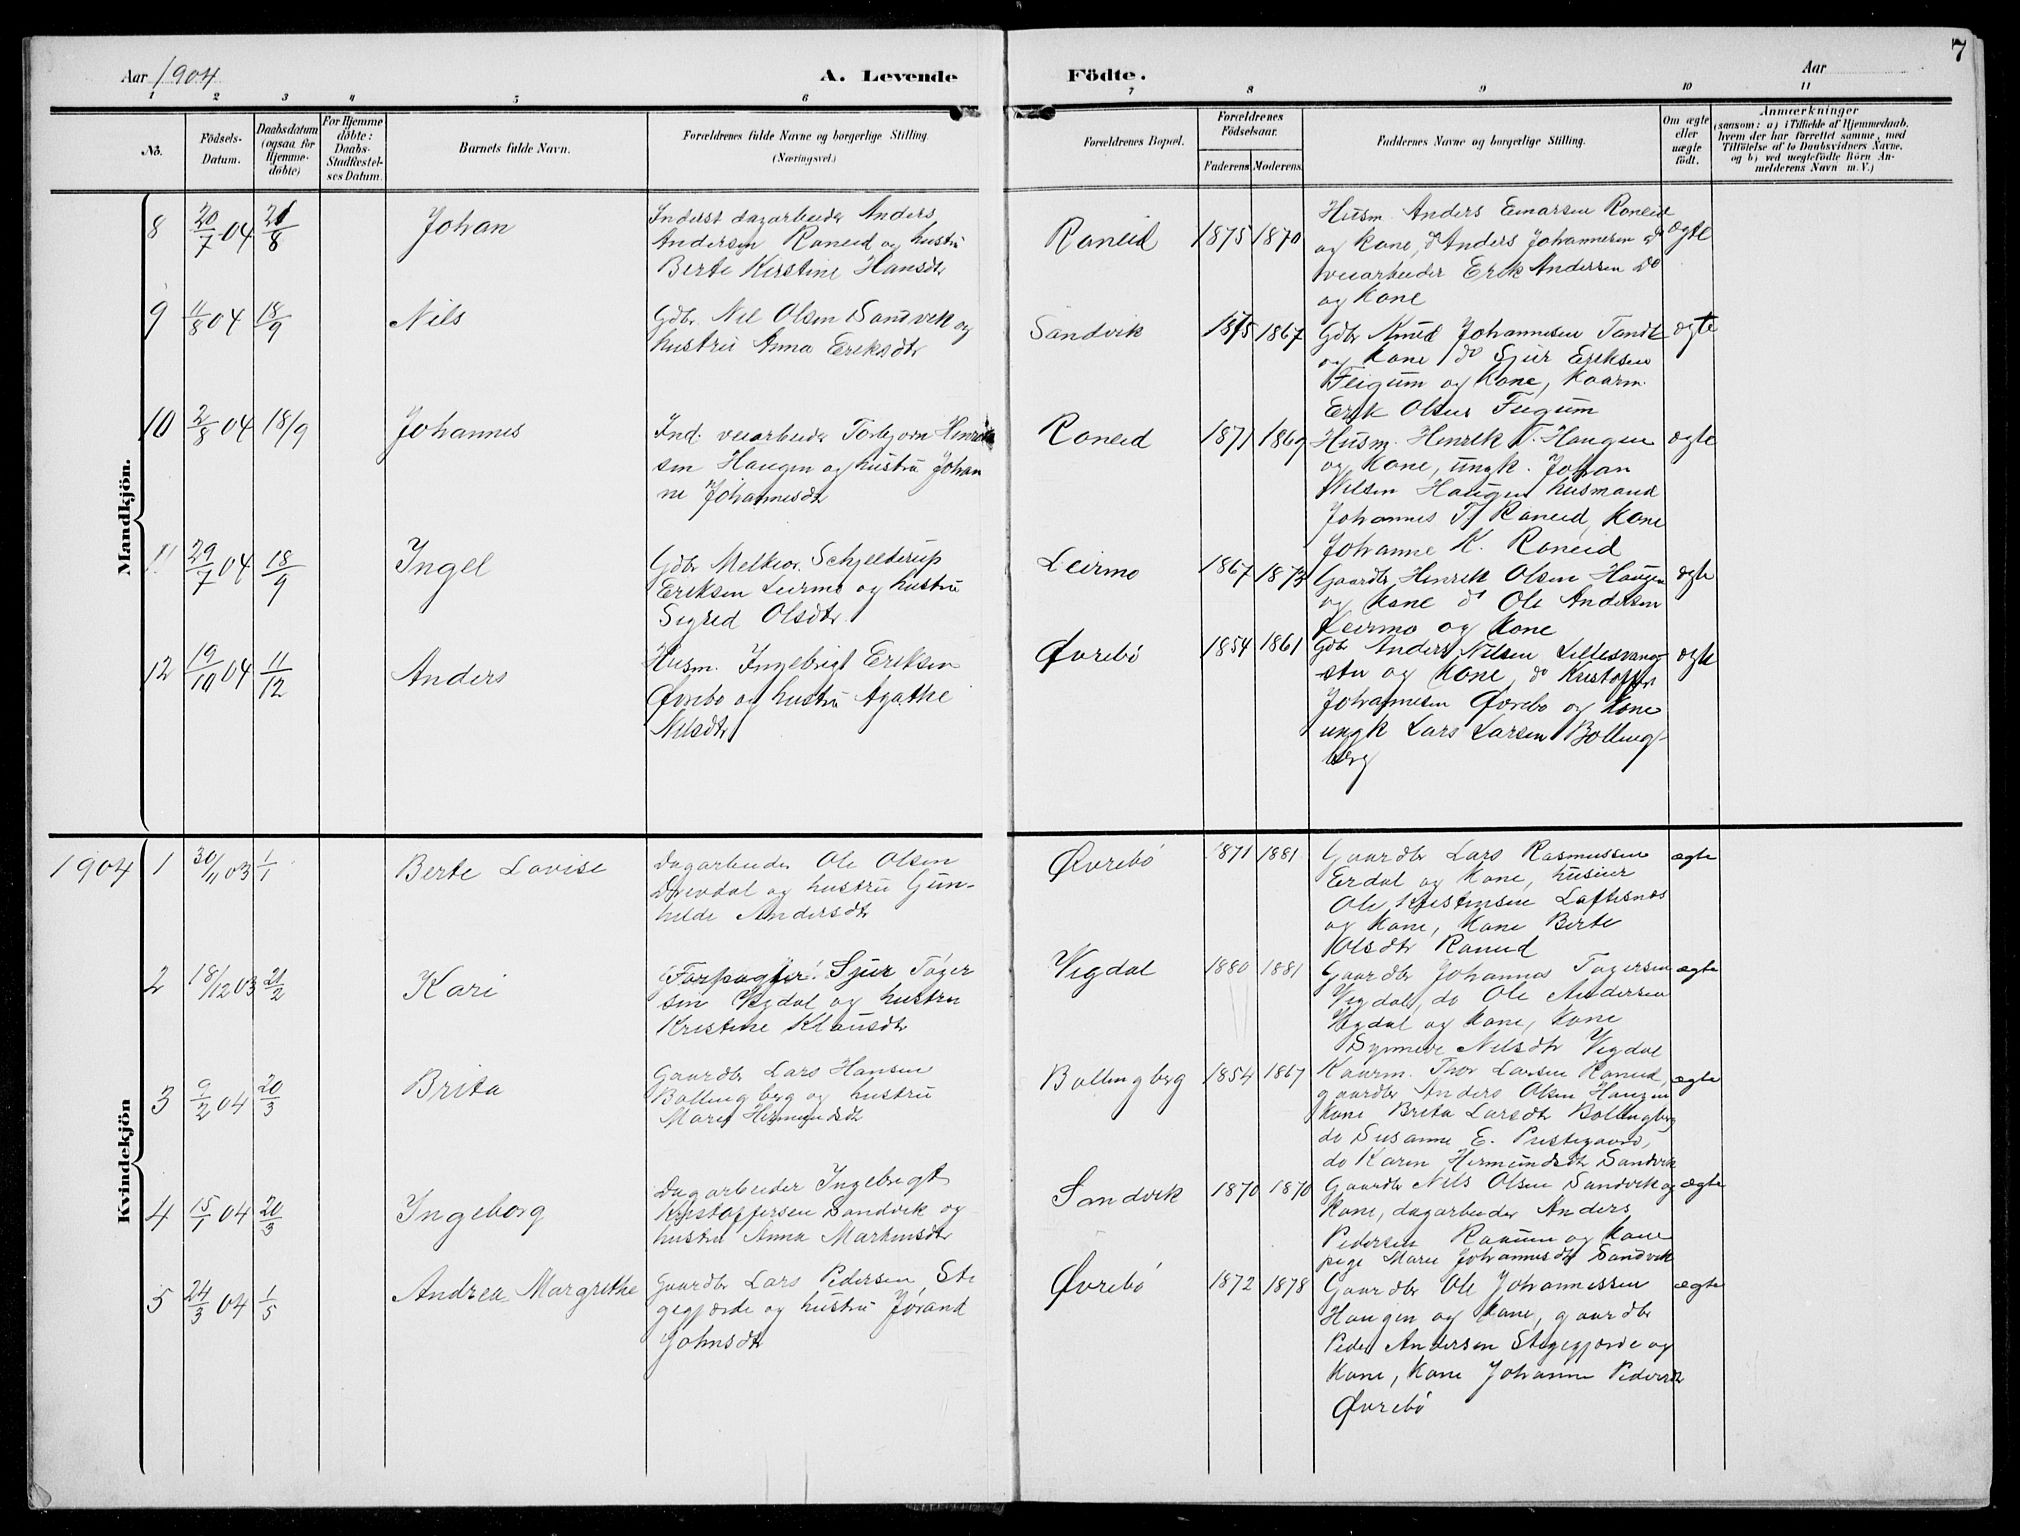 7
Aar 1904
A. Levende Födte.
Aar
1 2 3 4 5 6 7 8 9 10 11
No.
Födsels-Datum.
Daabsdatum (ogsaa for Hjemme-döbte)
For Hjemme döbte: Daabs-Stadfæstel-ses Datum.
Barnets fulde Navn.
Forældrenes fulde Navne og borgerlige Stilling.
(Næringsvei.)
Forældrenes Bopæl.
Forældrenes Födselsaar.
Faderens Moderens
Faddernes Navne og borgerlige Stilling.
Om ægte eller uægte födt.
Anmærkninger
(saasom: a) i Tilfælde af Hjemmedaab,
hvem der har forrettet samme, med
Tilföielse af to Daabsvidners Navne,
og b) ved uægtefödte Börn An-
melderens Navn m. V.)
Mandkjön.
8 20/7 04 21/8 Johan
Inderst dagarbeider Anders
Andersen Raneid og hustru
Berte Kirstine Hansdtr
Raneid 1875 1870
Husm. Anders Einarsen Raneid
og kone, do Anders Johannesen do
veiarbeider Erik Andersen Do
og Kone
ægte
9 11/8 04 18/9 Nils
Gdbr Nil Olsen Sandvik og
hustru Anna Eriksdtr
Sandvik 1875 1867
Gdbr Knud Johannesen Tandle
og kone do Sjur Eriksen
Feigum og Kone, Kaarm.
Erik Olsen Feigum
ægte
10 2/8 04 18/9 Johannes
Ind. veiarbeider Torbjørn Henrik
sen Haugen og hustru Johan
ne Johannesdtr
Raneid 1871 1869
Husm. Henrik T. Haugen
og Kone, ungk. Johan
Nilsen Haugen husmand
Johannes T. Raneid, Kone
Johanne K. Raneid
ægte
11 29/7 04 18/9 Ingel
Gdbr Melkior Schjelderup
Eriksen Leirmo og hustru
Sigrid Olsdtr
Leirmo 1867 1873
Gaardbr Henrik Olsen Haugen
og Kone do Ole Andersen
Leirmo og Kone
ægte
12 19/10 04 11/12 Anders
Husm. Ingebrigt Eriksen
Øvrebø og hustru Agathe
Nilsdtr
Øvrebø 1854 1861
Gdbr Anders Nilsen Lillesvang
sten og Kone, do Kristoffer
Johannesen Øvrebø og Kone
ungk Lars Larsen Bolling-
berg
ægte
Kvindekjön
1904 1 30/11 03 1/1 Berte Lovise
Dagarbeider Ole Olsen
Drevdal og hustru Gun-
hilde Andersdtr
Øvrebø 1871 1881
Gaardbr Lars Rasmussen
Erdal og Kone, husier
Ole Kristensen Loftesnæs
og Kone, Kone Berte
Olsdtr Raneid
ægte
2 18/12 03 21/2 Kari
Forpagter Sjur Tøger
sen Vigdal og hustru
Kristine Klausdtr
Vigdal 1880 1881
Gaardbr Johannes Tøgersen
Vigdal, do Ole Andersen
Vigdal og Kone, Kone
Synneve Nilsdtr Vigdal
ægte
3 9/2 04 20/3 Brita
Gaardbr Lars Hansen
Bollingberg og hustru
Mari Hermundsdtr
Bollingberg 1854 1867
Kaarm. Thor Larsen Raneid,
gaardbr Anders Olsen Haugen
kone Brita Larsdtr Bollingberg
do Susanne E. Prestegaard,
do Karen Hermundsdtr Sandvik
ægte
4 15/1 04 20/3 Ingeborg
Dagarbeider Ingebrigt
Kristoffersen Sandvik og
hustru Anna Martinsdtr
Sandvik 1870 1870
Gaardbr Nils Olsen Sandvik og
Kone, dagarbeider Anders
Pedersen Raaum og Kone
pige Mari Johannesdtr Sandvik
ægte
5 24/3 04 1/5 Andrea Margrethe
Gaardbr Lars Pedersen Ste
gegjærde og hustru Jørand
Johnsdtr
Øvrebø 1872 1878
Gaardbr Ole Johannessen
Haugen og Kone, gaardbr
Peder Andersen Stegegjærde og
Kone, Kone Johanne Pedersdtr
Øvrebø
ægte